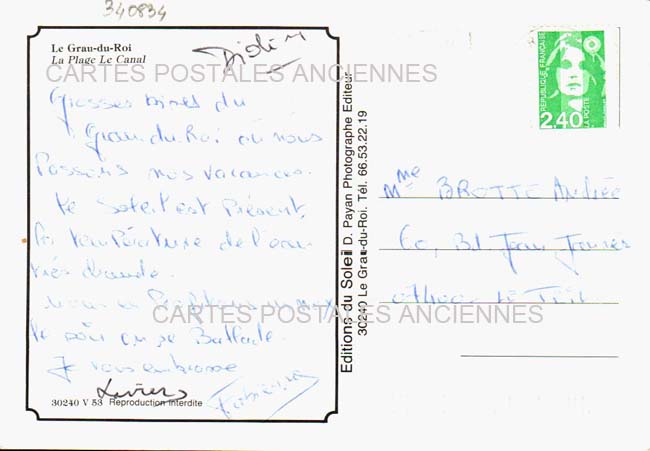 340834
Le Grau-du-Roi
La Plage Le Canal
CARTES POSTALES ANCIENNES
Grosses bises du
Grau du Roi où nous
Passons nos vacances.
Le Soleil est Présent,
la température de l'eau
très chaude.
Nous en Profitons
le soir on se Ballade.
Je vous embrasse
CARTES POSTALES ANCIENNES
30240 V 53 Reproduction interdite
Editions du Soleil D. Payan Photographe Editeur
30240 Le Grau-du-Roi. Tél. 66.53.22.19
REPUBLIQUE FRANÇAISE
LA POSTE
2,40
Mme BROTTE Andrée
Bd Jean Jaures